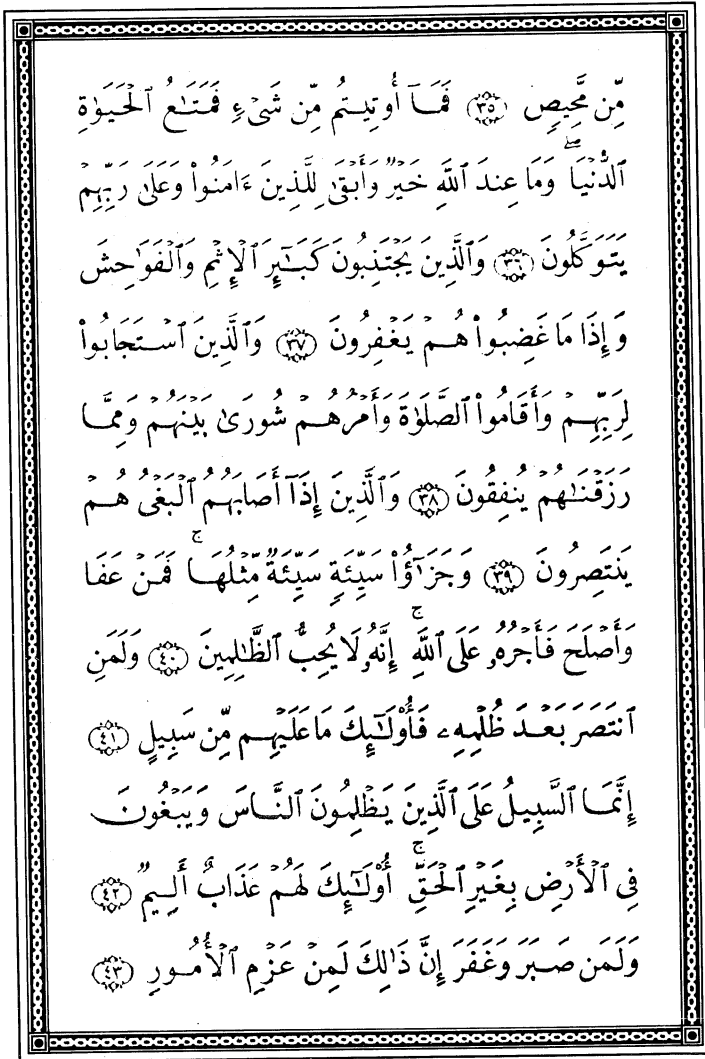 مِّن مَّحِيصٍ ﴿٣٥﴾ فَمَآ أُوتِيتُم مِّن شَىْءٍ فَمَتَـٰعُ ٱلْحَيَوٰةِ
ٱلدُّنْيَا ۖ وَمَا عِندَ ٱللَّهِ خَيْرٌ وَأَبْقَىٰ لِلَّذِينَ ءَامَنُوا۟ وَعَلَىٰ رَبِّهِمْ
يَتَوَكَّلُونَ ﴿٣٦﴾ وَٱلَّذِينَ يَجْتَنِبُونَ كَبَـٰٓئِرَ ٱلْإِثْمِ وَٱلْفَوَٰحِشَ
وَإِذَا مَا غَضِبُوا۟ هُمْ يَغْفِرُونَ ﴿٣٧﴾ وَٱلَّذِينَ ٱسْتَجَابُوا۟
لِرَبِّهِمْ وَأَقَامُوا۟ ٱلصَّلَوٰةَ وَأَمْرُهُمْ شُورَىٰ بَيْنَهُمْ وَمِمَّا
رَزَقْنَـٰهُمْ يُنفِقُونَ ﴿٣٨﴾ وَٱلَّذِينَ إِذَآ أَصَابَهُمُ ٱلْبَغْىُ هُمْ
يَنتَصِرُونَ ﴿٣٩﴾ وَجَزَٰٓؤُا۟ سَيِّئَةٍ سَيِّئَةٌ مِّثْلُهَا ۖۚ فَمَنْ عَفَا
وَأَصْلَحَ فَأَجْرُهُۥ عَلَى ٱللَّهِ ۚ إِنَّهُۥ لَا يُحِبُّ ٱلظَّـٰلِمِينَ ﴿٤٠﴾ وَلَمَنِ
ٱنتَصَرَ بَعْدَ ظُلْمِهِۦ فَأُو۟لَـٰٓئِكَ مَا عَلَيْهِم مِّن سَبِيلٍ ﴿٤١﴾
إِنَّمَا ٱلسَّبِيلُ عَلَى ٱلَّذِينَ يَظْلِمُونَ ٱلنَّاسَ وَيَبْغُونَ
فِى ٱلْأَرْضِ بِغَيْرِ ٱلْحَقِّ ۚ أُو۟لَـٰٓئِكَ لَهُمْ عَذَابٌ أَلِيمٌ ﴿٤٢﴾
وَلَمَن صَبَرَ وَغَفَرَ إِنَّ ذَٰلِكَ لَمِنْ عَزْمِ ٱلْأُمُورِ ﴿٤٣﴾